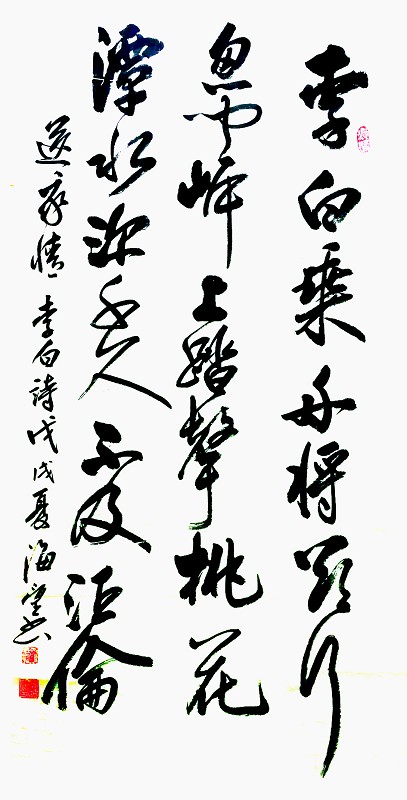 李白乗舟將欲行
忽闻岸上踏聲桃花
潭水深千尺不及汪倫
送我情 李白詩戊戌夏海书